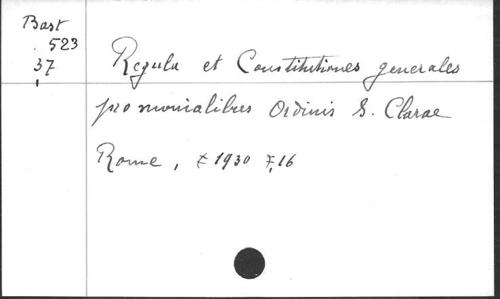 Bast
. 523
37
Regula et Constitutiones generales
pro monialibus Ordinis S. Clarae
Rome, 1930 16